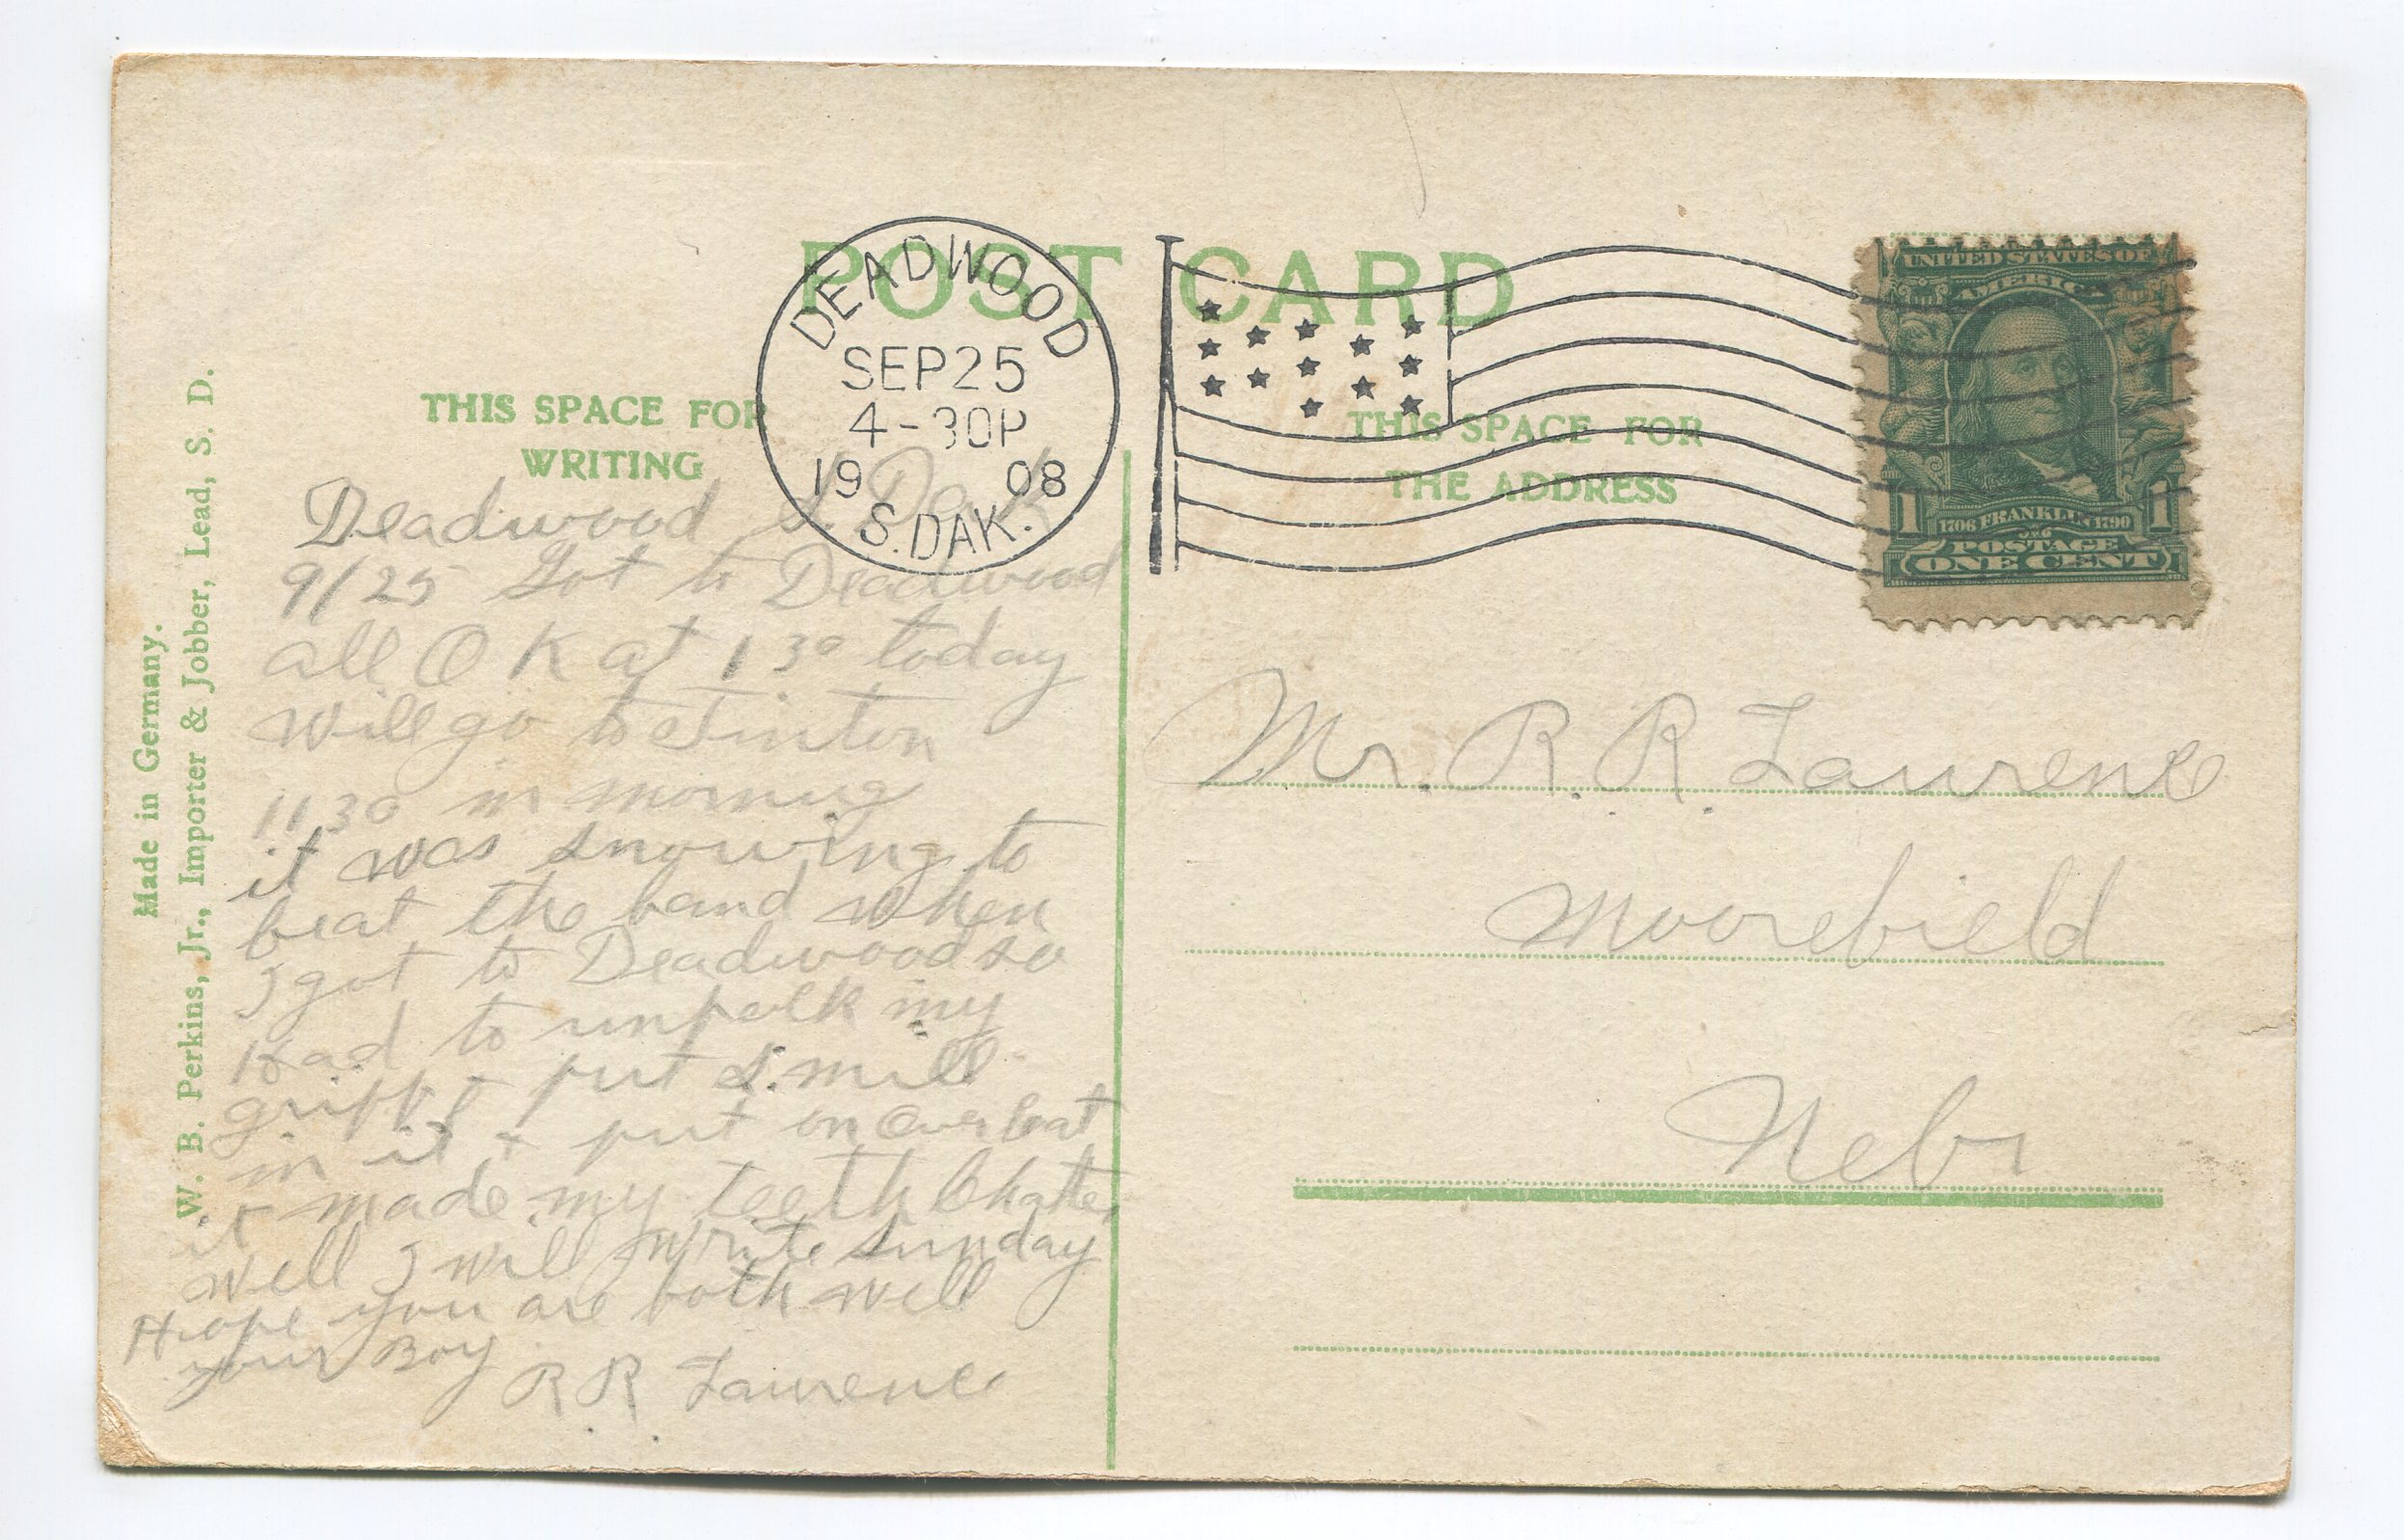 POST CARD
DEADWOOD
SEP 25
4-30P
19 08
S.DAK.
UNITED STATES OF
AMERICA
1706 FRANKLIN 1790
1 1
POSTAGE
ONE CENT
THIS SPACE FOR
WRITING
THIS SPACE FOR
THE ADDRESS
Made in Germany.
W. B. Perkins, Jr., Importer & Jobber, Lead, S. D.
Deadwood S. Dak
9/25 Got to Deadwood
all O K at 1 30 today
will go to
11 30 in morning
it was snowing to
beat the band when
I got to Deadwood so
Had to unpack my
grip & put
in it & put on Over Coat
it made my teeth Chatter
well I will write Sunday
Hope you are both well
your Boy
R R Lawrence
Mr. R. R. Lawrence
Moorefield
Nebr